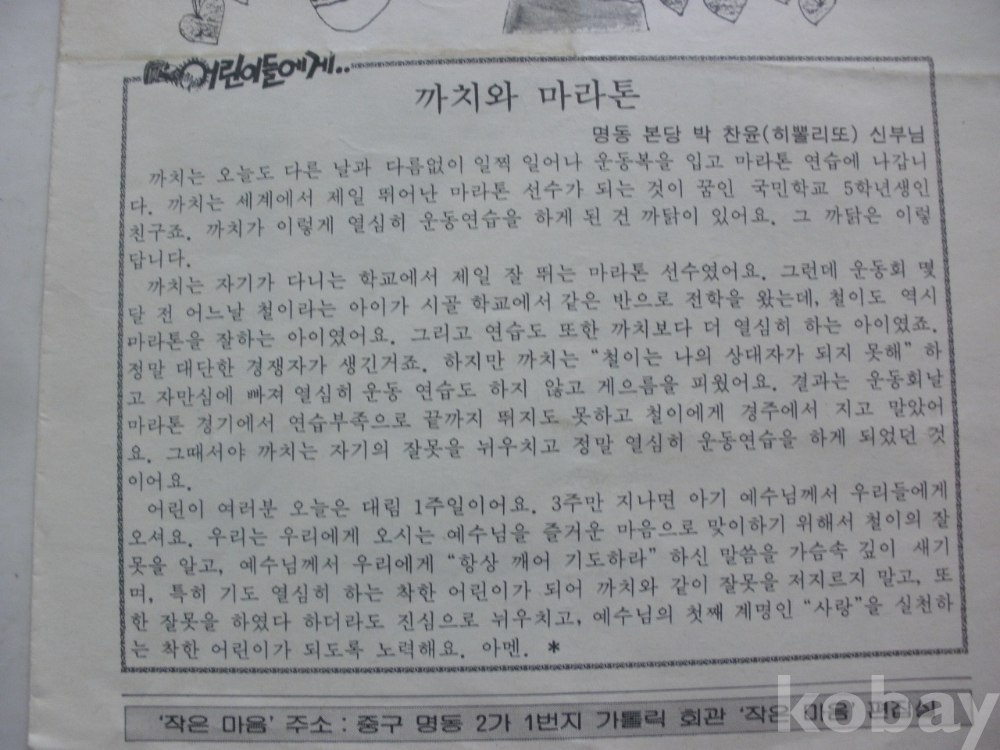 어린이들에게..
까치와 마라톤
명동 본당 박 찬윤(히뽈리또) 신부님
까치는 오늘도 다른 날과 다름없이 일찍 일어나 운동복을 입고 마라톤 연습에 나갑니
다. 까치는 세계에서 제일 뛰어난 마라톤 선수가 되는 것이 꿈인 국민학교 5학년생인
친구죠. 까치가 이렇게 열심히 운동연습을 하게 된 건 까닭이 있어요. 그 까닭은 이렇
답니다.
까치는 자기가 다니는 학교에서 제일 잘 뛰는 마라톤 선수였어요. 그런데 운동회 몇
달 전 어느날 철이라는 아이가 시골 학교에서 같은 반으로 전학을 왔는데, 철이도 역시
마라톤을 잘하는 아이였어요. 그리고 연습도 또한 까치보다 더 열심히 하는 아이였죠.
정말 대단한 경쟁자가 생긴거죠. 하지만 까치는 “철이는 나의 상대자가 되지 못해” 하
고 자만심에 빠져 열심히 운동 연습도 하지 않고 게으름을 피웠어요. 결과는 운동회날
마라톤 경기에서 연습부족으로 끝까지 뛰지도 못하고 철이에게 경주에서 지고 말았어
요. 그때서야 까치는 자기의 잘못을 뉘우치고 정말 열심히 운동연습을 하게 되었던 것
이어요.
어린이 여러분 오늘은 대림 1주일이어요. 3주만 지나면 아기 예수님께서 우리들에게
오셔요. 우리는 우리에게 오시는 예수님을 즐거운 마음으로 맞이하기 위해서 철이의 잘
못을 알고, 예수님께서 우리에게 “항상 깨어 기도하라” 하신 말씀을 가슴속 깊이 새기
며, 특히 기도 열심히 하는 착한 어린이가 되어 까치와 같이 잘못을 저지르지 말고, 또
한 잘못을 하였다 하더라도 진심으로 뉘우치고, 예수님의 첫째 계명인 “사랑”을 실천하
는 착한 어린이가 되도록 노력해요. 아멘. *
'작은 마음' 주소 : 중구 명동 2가 1번지 가톨릭 회관 '작은 마음' 편집실
kobay